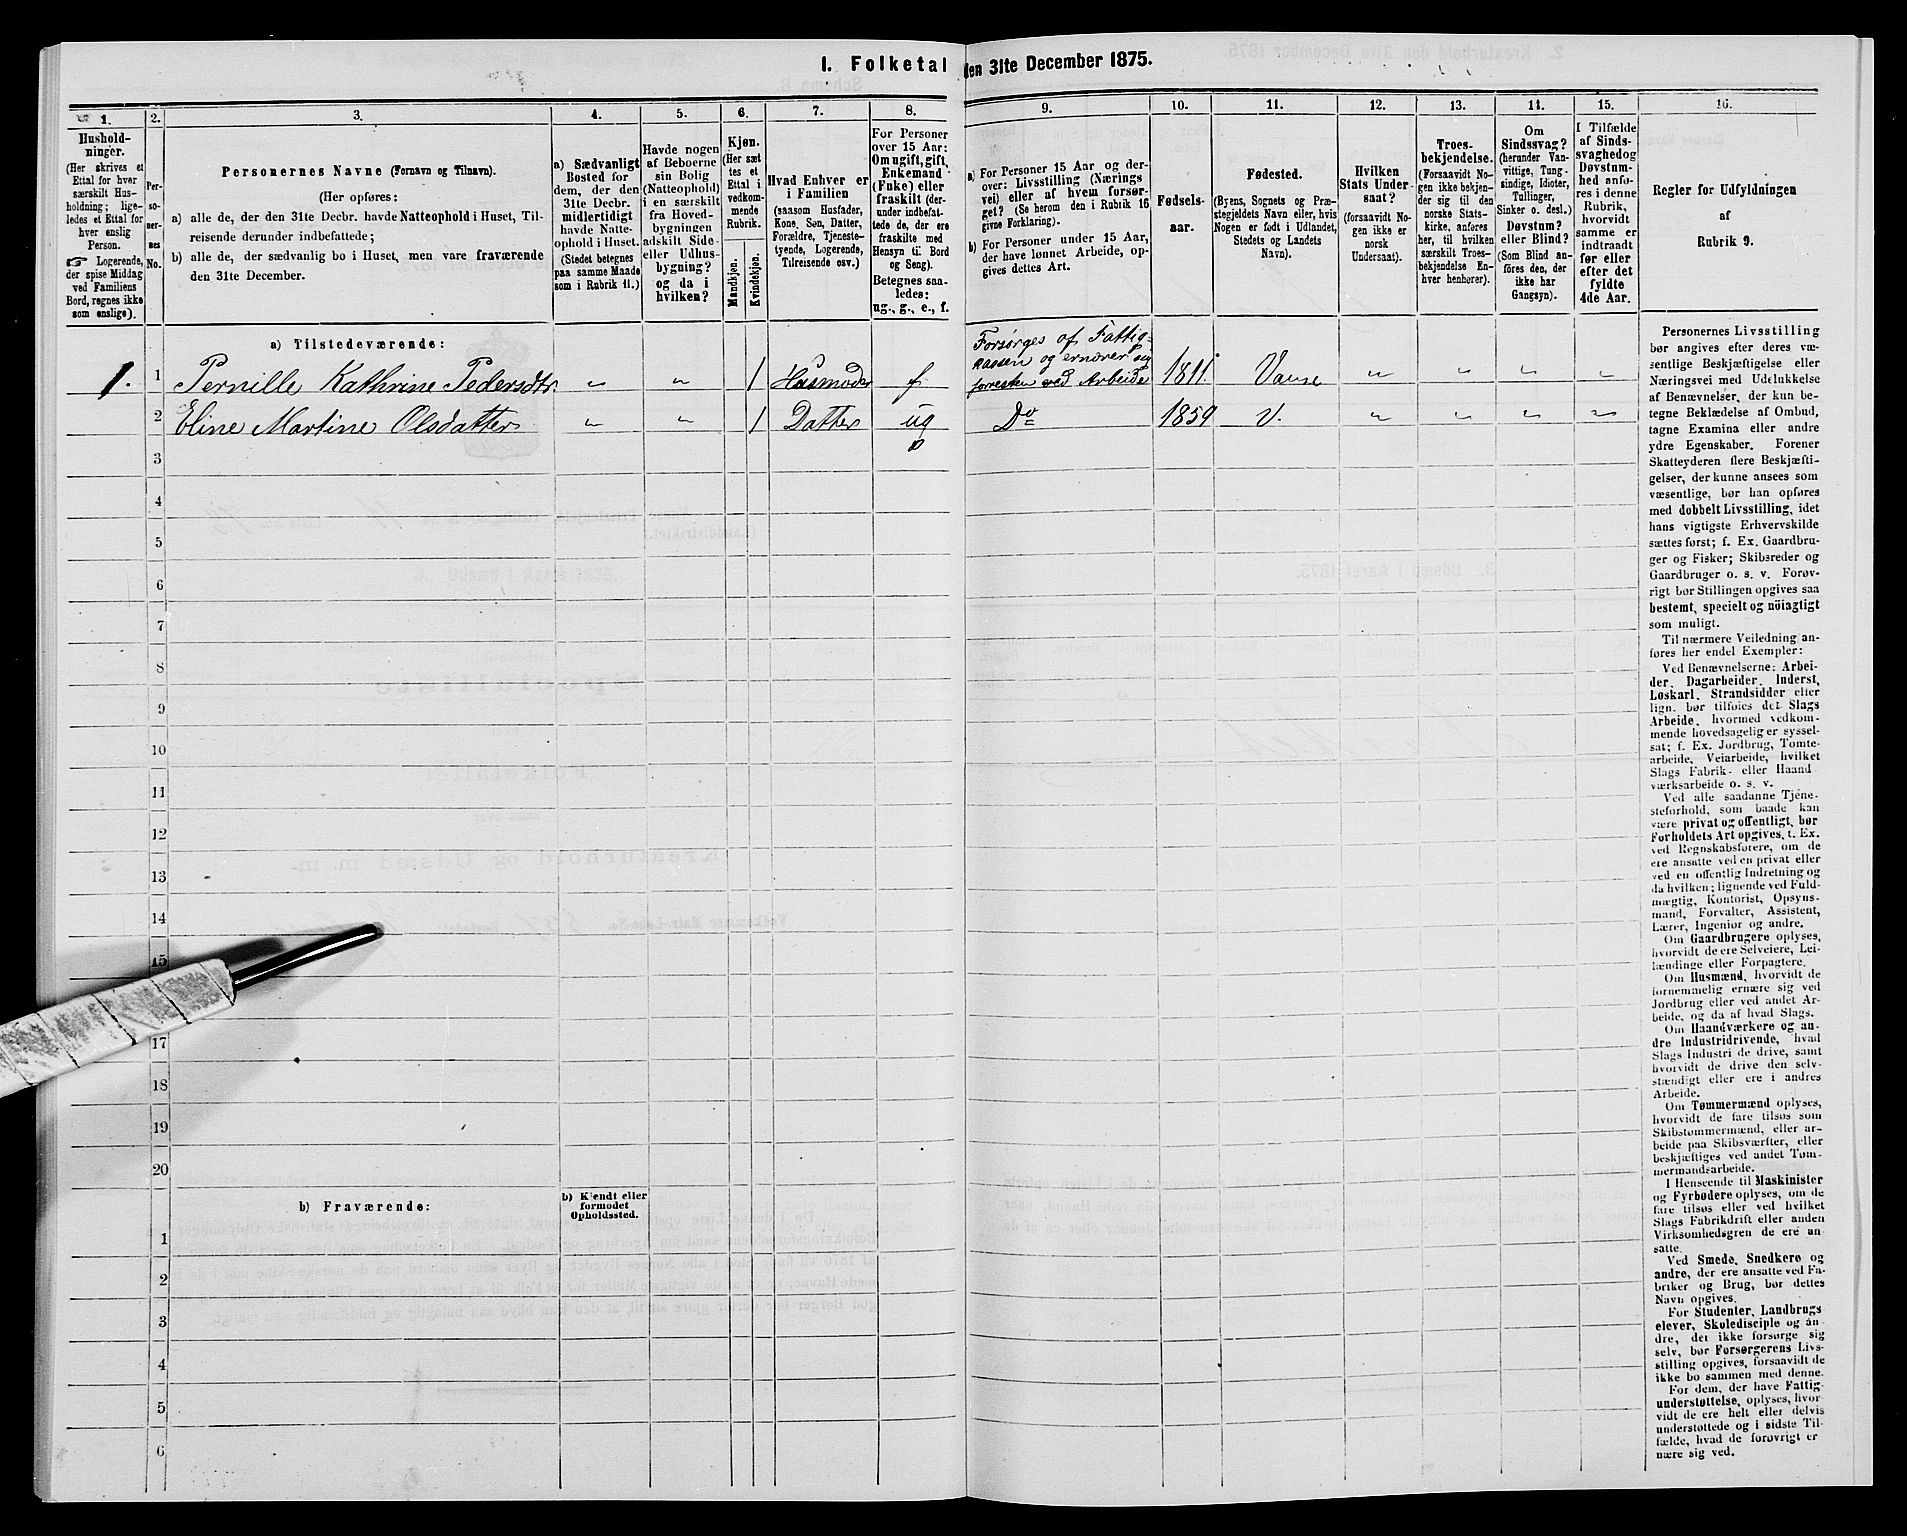 1. Folketal den 31te December 1875.
1.
Hushold-
ninger.
(Her skrives et
Ettal for hver
særskilt Hus-
holdning; lige-
ledes et Ettal for
hver enslig
Person.
☞ Logerende,
der spise Middag
ved Familiens
Bord, regnes ikke
som enslige).
2.
Per-
so-
ner-
nes
No.
3.
Personernes Navne (Fornavn og Tilnavn).
(Her opføres:
a) alle de, der den 31te Decbr. havde Natteophold i Huset, Til-
reisende derunder indbefattede;
b) alle de, der sædvanlig bo i Huset, men vare fraværende
den 31te December.
4.
a) Sædvanligt
Bosted for
dem, der den
31te Decbr.
midlertidigt
havde Natte-
ophold i Huset.
(Stedet betegnes
paa samme Maade
som i Rubrik 11.)
5.
Havde nogen
af Beboerne
sin Bolig
(Natteophold)
i en særskilt
fra Hoved-
bygningen
adskilt Side-
eller Udhus-
bygning?
og da i
hvilken?
6.
Kjøn.
(Her sæt
tes et
Ettal i
vedkom-
mende
Rubrik.
Mandkjøn.
Kvindekjøn.
7.
Hvad Enhver er
i Familien
(saasom Husfader,
Kone, Søn, Datter,
Forældre, Tjeneste-
tyende, Logerende,
Tilreisende osv.)
8.
For Personer
over 15 Aar:
Om ugift, gift,
Enkemand
(Enke) eller
fraskilt (der-
under indbefat-
tede de, der ere
fraskilte med
Hensyn til Bord
og Seng).
Betegnes saa-
ledes:
ug., g., e., f.
9.
a) For Personer 15 Aar og der-
over: Livsstilling (Nærings
vei) eller af hvem forsør-
get? (Se herom den i Rubrik 16
givne Forklaring).
b) For Personer under 15 Aar,
der have lønnet Arbeide, op-
gives dettes Art.
10.
Fødsels-
aar.
11.
Fødested.
(Byens, Sognets og Præ-
stegjeldets Navn eller, hvis
Nogen er født i Udlandet,
Stedets og Landets
Navn).
12.
Hvilken
Stats Under-
saat?
(forsaavidt No-
gen ikke er
norsk
Undersaat).
13.
Troes-
bekjendelse.
(Forsaavidt No
gen ikke bekjen-
der sig til den
norske Stats-
kirke, anføres
her, til hvilken
særskilt Troes-
bekjendelse En-
hver henhører).
14.
Om
Sindssvag?
(herunder Van-
vittige, Tung-
sindige, Idioter,
Tullinger,
Sinker o. desl.)
Døvstum?
eller Blind?
(Som Blind an-
føres den, der
ikke har
Gangsyn).
15.
I Tilfælde
af Sinds-
svaghed og
Døvstum-
hed anfø-
res i denne
Rubrik,
hvorvidt
samme er
indtraadt
før eller
efter det
fyldte
4de Aar.
16.
Regler for Udfyldningen
af
Rubrik 9.
a) Tilstedeværende:
1. 1 Pernille Kathrine Pedersdtr. " " 1 Husmoder f Forsørges af Fattig-
kassen og ernærer sig
forresten ved Arbeide 1811. Vanse " " " "
2 Eline Martine Olsdatter " " 1 Datter ug Do 1859 V. " " " "
3
4
5
6
7
8
9
10
11
12
13
14
15
17
18
19
20
b) Fraværende:
b) Kjendt eller
formodet
Opholdssted.
1
2
3
4
5
6
Personernes Livsstilling
bør angives efter deres væ-
sentlige Beskjæftigelse eller
Næringsvei med Udelukkelse
af Benævnelser, der kun be-
tegne Beklædelse af Ombud,
tagne Examina eller andre
ydre Egenskaber. Forener
Skatteyderen flere Beskjæfti-
gelser, der kunne ansees som
væsentlige, bør han opføres
med dobbelt Livsstilling, idet
hans vigtigste Erhvervskilde
sættes først; f. Ex. Gaardbru-
ger og Fisker; Skibsreder og
Gaardbruger o. s. v. Forøv-
rigt bør Stillingen opgives saa
bestemt, specielt og nöiagtigt
som muligt.
Til nærmere Veiledning an-
føres her endel Exempler:
Ved Benævnelserne: Arbei-
der, Dagarbeider, Inderst,
Løskarl, Strandsidder eller
lign. bør tilføies det Slags
Arbeide, hvormed vedkom-
mende hovedsagelig er syssel-
sat; f. Ex. Jordbrug, Tomte-
arbeide, Veiarbeide, hvilket
Slags Fabrik- eller Haand
værksarbeide o. s. v.
Ved alle saadanne Tjene-
steforhold, som baade kan
være privat og offentligt, bør
Forholdets Art opgives, t. Ex.
ved Regnskabsførere, om de
ere ansatte ved en privat eller
ved en offentlig Indretning og
da hvilken; lignende ved Fuld-
mægtig, Kontorist, Opsyns-
mand, Forvalter, Assistent,
Lærer, Ingeniør og andre.
Om Gaardbrugere oplyses,
hvorvidt de ere Selveiere, Lei-
lændinge eller Forpagtere.
Om Husmænd, hvorvidt de
fornemmelig ernære sig ved
Jordbrug eller ved andet Ar-
beide, og da af hvad Slags.
Om Haandværkere og an-
dre Industridrivende, hvad
Slags Industri de drive, samt
hvorvidt de drive den selv-
stændigt eller ere i andres
Arbeide.
Om Tømmermænd oplyses,
hvorvidt de fare tilsøs som
Skibstømmermænd, eller ar-
beide paa Skibsværfter, eller
beskjæftiges ved andet Tøm-
mermandsarbeide.
I Henseende til Maskinister
og Fyrbødere oplyses, om de
fare tilsøs eller ved hvilket
Slags Fabrikdrift eller anden
Virksomhedsgren de ere an-
satte.
Ved Smede, Snedkere og
andre, der ere ansatte ved Fa-
briker og Brug, bør dettes
Navn opgives.
For Studenter, Landbrugs
elever, Skoledisciple og an
dre, der ikke forsørge sig
selv, bør Forsørgerens Livs-
stilling opgives, forsaavidt de
ikke bo sammen med denne.
For dem, der have Fattig-
understøttelse, oplyses, hvor-
vidt de ere helt eller delvis
understøttede og i sidste Til-
fælde, hvad de forøvrigt er
nære sig ved.